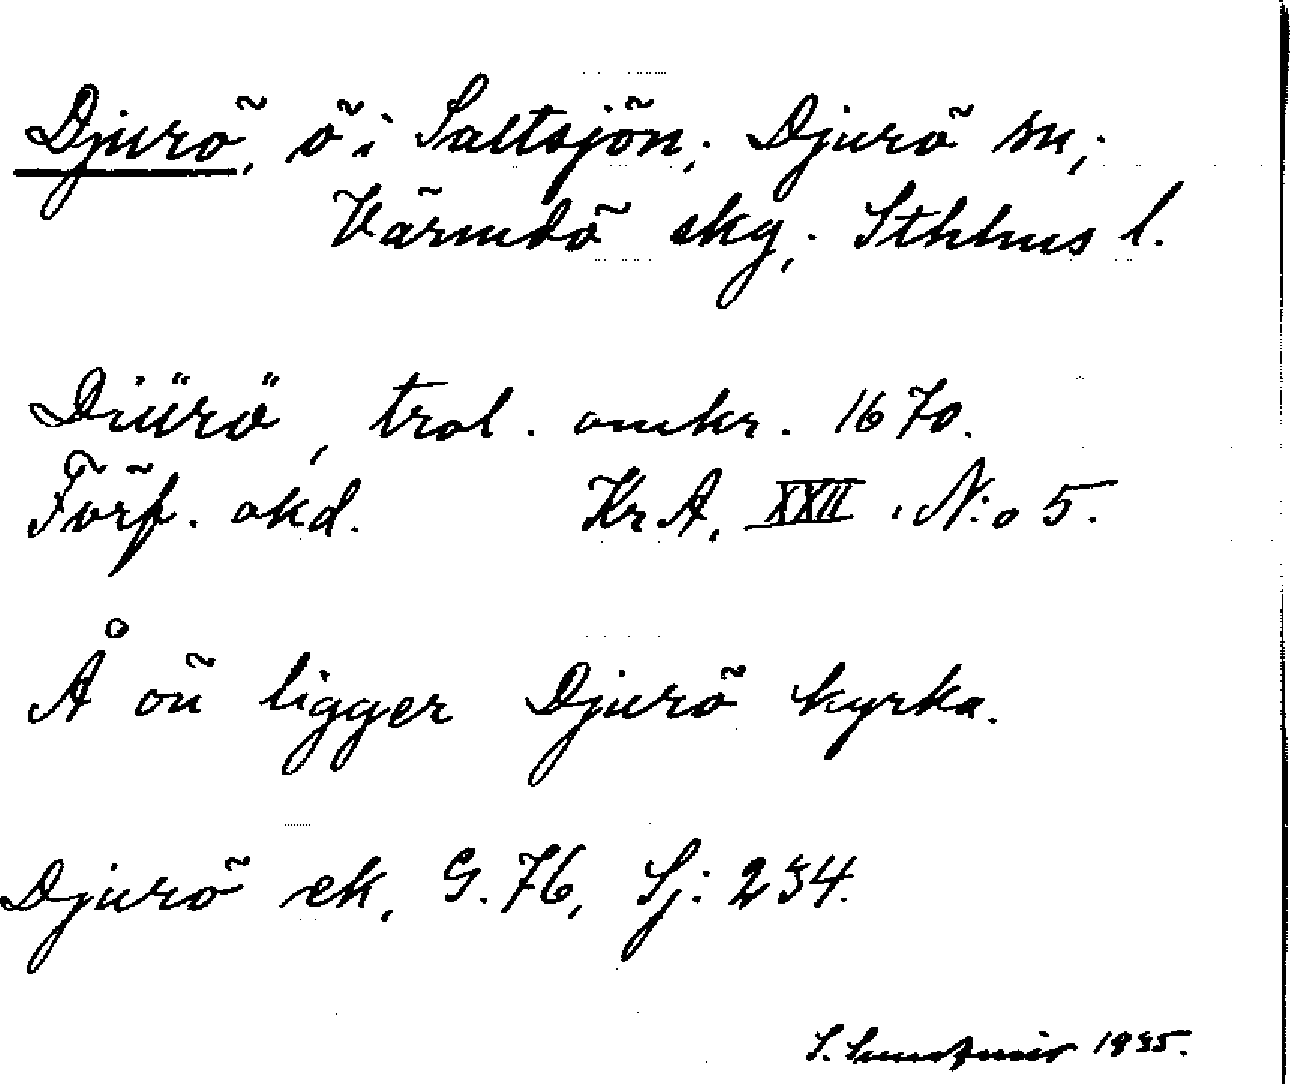 Djurö, ö i Saltsjön; Djurö sn,;
Värmdö skg,. Sthlms l.
Diürö, trol. omkr. 1670.
Förf. okd. Kr A, XXII. N:o 5.
Å ön ligger Djurö kyrka.
Djurö ek, G. 76, Sj: 234.
S. 1935.